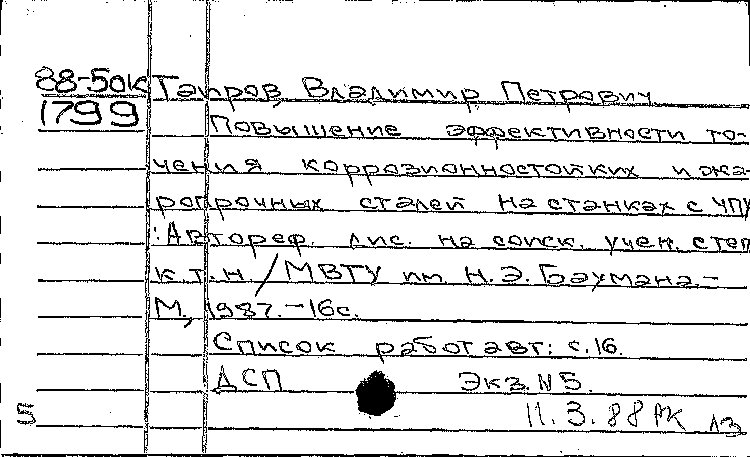 88-50к Таиров, Владимир Петрович
1799
Повышение эффективности то-
чения коррозионностойких и жа-
ропрочных сталей на станках с ЧПУ
: Автореф. дис. на соиск. учен. степ
к.т.н. / МВТУ им. Н.Э. Баумана.-
М., 1987.-16с.
Список работ авт.: с.16.
ДСП Экз. N5.
5 11.3.88 РК